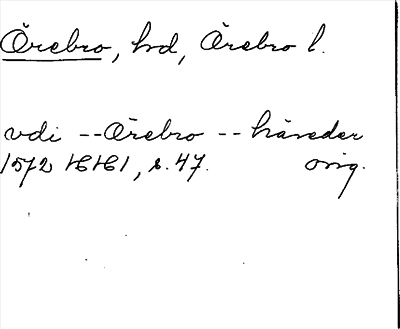 Örebro, hd, Örebro l.
vdi -- Örebro -- häreder
1572 16161, s. 47. orig.